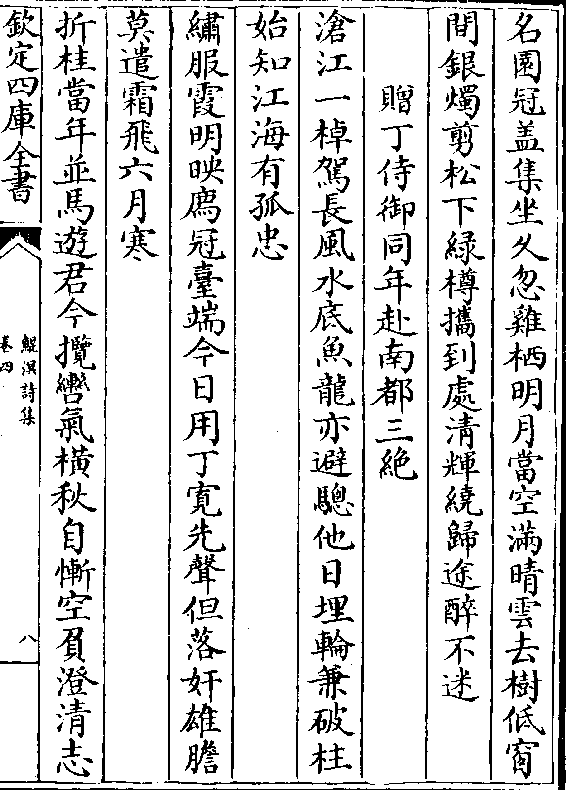 名園冠盖集坐久忽雞栖明月當空滿晴雲去樹低窗
間銀燭剪松下緑樽攜到處清輝繞歸途醉不迷
贈丁侍御同年赴南都三絶
滄江一棹駕長風水底魚龍亦避驄他日埋輪兼破柱
始知江海有孤忠
繡服霞明映廌冠臺端今日用丁寛先聲但落奸雄膽
莫遣霜飛六月寒
折桂當年並馬遊君今攬轡氣横秋自慚空負澄清志
欽定四庫全書
鯤溟詩集
卷四
八